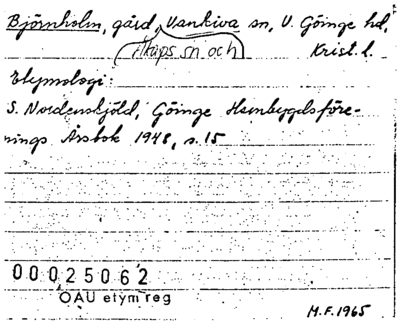 Björnholm, gård, Vankiva sn, V. Göinge hd,
Ittåps sn och
Krist. l.
Etymologi:
S. Nordenskjöld, Göinge Hembygdsföre-
nings Årsbok 1948, s. 15
00025062
OAU etym reg
M.F. 1965